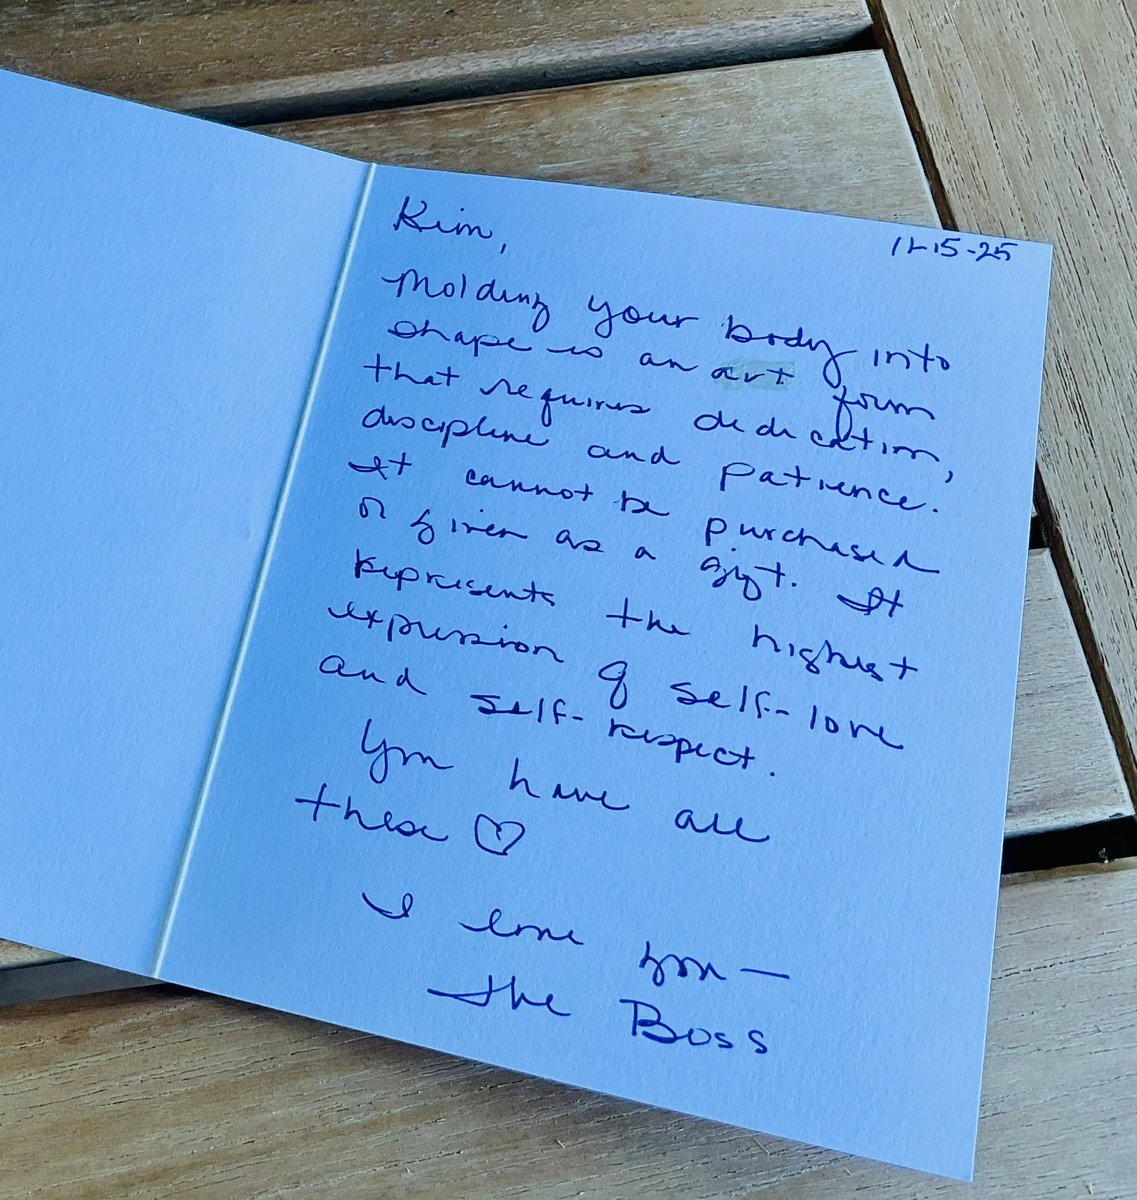 Kim,
11-15-25
Molding your body into
shape is an art form
that requires dedication,
discipline and patience.
It cannot be purchased
or given as a gift. It
represents the highest
expression of self-love
and self-respect.
You have all
these ♡
I love you—
the Boss